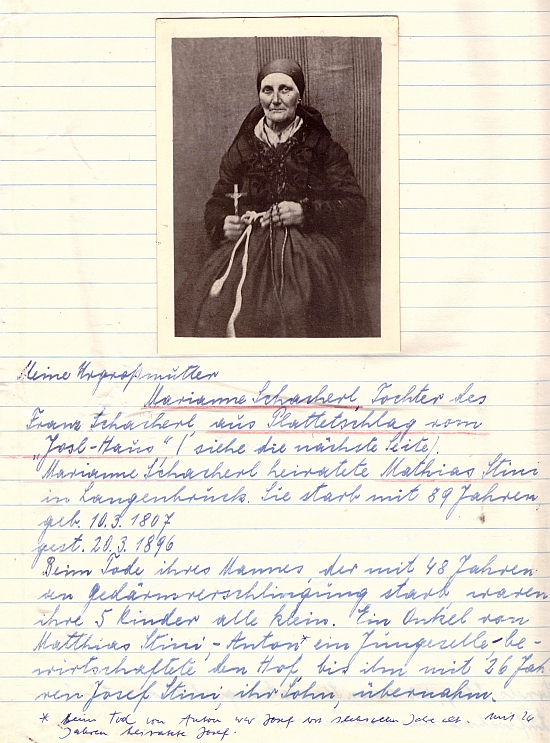 Meine Urgroßmutter
Marianne Schacherl, Tochter des
Franz Schacherl, aus Plattetschlag vom
„Josl-Haus" (siehe die nächste Seite).
Marianne Schacherl heiratete Mathias Stini
in Langenbruck. Sie starb mit 89 Jahren,
geb. 10.3.1807
gest. 20.3.1896
Beim Tode ihres Mannes, der mit 48 Jahren
an Gedärmverschlingung starb, waren
ihre 5 Kinder alle klein. Ein Onkel von
Matthias Stini, - Anton* ein Junggeselle - be-
wirtschaftete den Hof, bis ihn mit 26 Jah
ren Josef Stini, ihr Sohn, übernahm.
* Beim Tod von Anton war Josef Jahre alt. Mit 26
Jahren heiratete Josef.